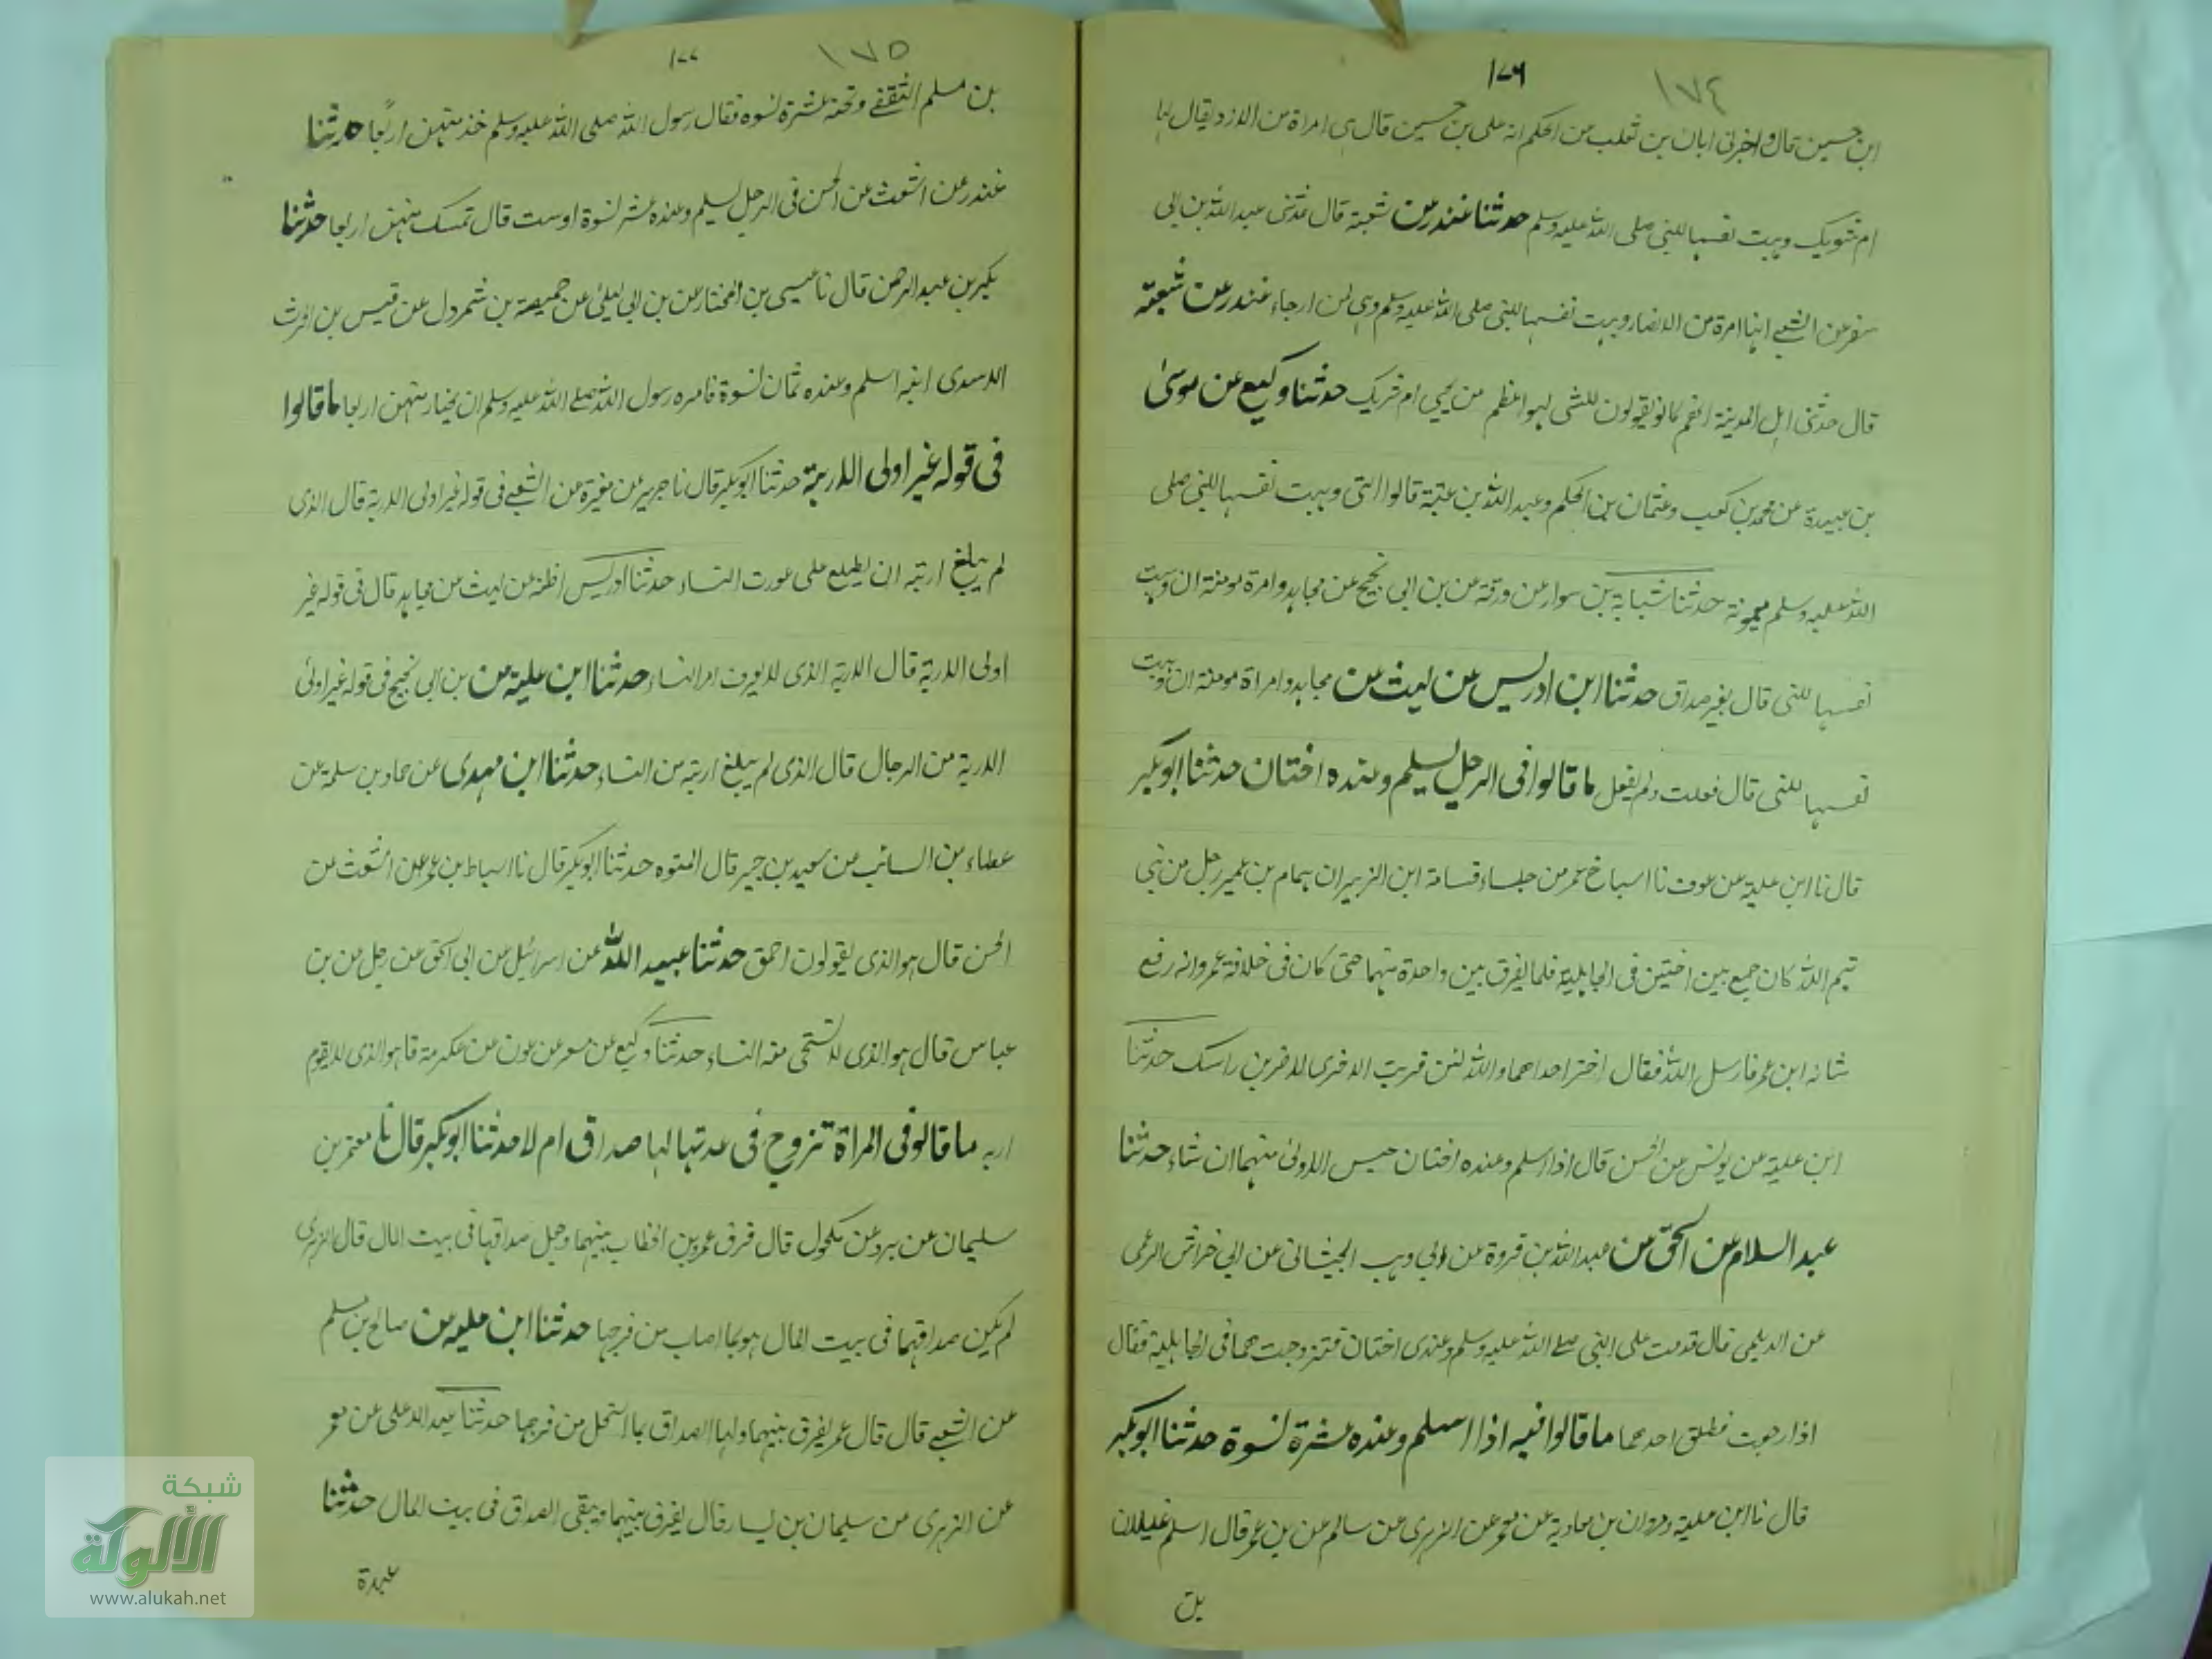 ١٧٤
١٧٦
ابن حسين قال واخبرنى ابان بن ثعلب من الحكم انه على بن حسين قال هى امراة من الازد يقال لها
ام شويك وهبت نفسها للنبى صلى الله عليه وسلم حدثنا غندر عن شعبة قال حدثنى عبد الله بن ابى
سفر عن الشعبى انها امرة من الانصار وهبت نفسها للنبى صلى الله عليه وسلم وهى لمن ارجاء غندر عن شعبة
قال حدثنى اهل المدينة انهم كانو يقولون للشى لهو اعظم من يحى ام شريك حدثنا وكيع عن موسى
بن عبيدة عن محمد بن كعب وعثمان بن الحكم وعبد الله بن عتبة قالوا التى وهبت نفسها للنبى صلى
الله عليه وسلم ميمونة حدثنا شبابة بن سوار عن ورقة عن بن ابى نجيح عن مجاهد وامرة مومنة ان وهبت
نفسها للنبى قال بغير صداق حدثنا ابن ادريس عن ليث عن مجاهد وامراة مومنة ان وهبت
نفسها للنبى قال فعلت ولم يفعل ما قالوا فى الرجل يسلم وعنده اختان حدثنا ابو بكر
قال نا ابن علية عن عوف نا اسباخ عمر من جلساء قسامة ابن الزبير ان همام بن عمير رجل من بنى
تيم الله كان جمع بين اختين فى الجاهلية فلما يفرق بين واحدة منهما حتى كان فى خلافة عمر وانه رفع
شانه ابن عمر فارسل الله فقال اختر احداهما والله لئن قربت الاخرى لاضربن راسك حدثنا
ابن علية عن يونس عن الحسن قال اذا اسلم وعنده اختان حبس الاولى منهما ان شاء حدثنا
عبد السلام عن اسحق عن عبد الله بن فروة عن ابى وهب الجيشانى عن ابى خراش الرعى
عن الديلمى قال قدمت على النبى صلى الله عليه وسلم وعندى اختان فتزوجت هما فى الجاهلية فقال
اذا رجعت فطلق احدهما ما قالوا فيه اذا اسلم وعنده عشرة نسوة حدثنا ابو بكر
قال نا ابن علية ومروان بن معاوية عن معمر عن الزهرى عن سالم عن بن عمر قال اسلم غيلان
بن
١٧٥
١٧٧
بن مسلم الثقفى وتحته عشرة نسوة فقال رسول الله صلى الله عليه وسلم خذ منهن اربعا حدثنا
غندر عن اشعث عن الحسن فى الرجل يسلم وعنده عشر نسوة اوست قال تمسك منهن اربعا حدثنا
بكير بن عبد الرحمن قال نا عيسى بن المختار عن بن ابى ليلى عن حميصة بن شمردل عن قيس بن الحرث
الاسدى انه اسلم وعنده ثمان نسوة فامره رسول الله صلى الله عليه وسلم ان يختار منهن اربعا ما قالوا
فى قوله غير اولى الاربة حدثنا ابو بكر قال نا جرير عن مغيرة عن الشعبى فى قوله غير اولى الاربة قال الذى
لم يبلغ اربته ان يطلع على عورت النساء حدثنا ادريس اظنه عن ليث عن مجاهد قال فى قوله غير
اولى الاربة قال الاربة الذى لا يعرف امر النساء حدثنا ابن علية عن بن ابى نجيح فى قوله غير اولى
الاربة من الرجال قال الذى لم يبلغ اربته من النساء حدثنا ابن مهدى عن حماد بن سلمة عن
عطاء بن السائب عن سعيد بن جبير قال المتوه حدثنا ابو بكر قال نا اسباط بن عمر عن اشعث عن
الحسن قال هو الذى يقولون احمق حدثنا عبيد الله عن اسرائيل عن ابى اسحق عن رجل عن بن
عباس قال هو الذى لا تستحى منه النساء حدثنا وكيع عن مسعر عن عون عن عكرمة قا هو الذى لا يقوم
اربه ما قالو فى المراة تزوج فى عدتها لها صداق ام لا حدثنا ابو بكر قال نا معتمر بن
سليمان عن برد عن مكحول قال فرق عمر بن الخطاب بينهما وجعل صداقها فى بيت المال قال الزهرى
لم يكن صداقهما فى بيت المال هو بما اصاب من فرجها حدثنا ابن عليه عن صالح بن مسلم
عن الشعبى قال قال عمر يفرق بينهما ولها الصداق بما استحل من فرجها حدثنا عبد الاعلى عن معمر
عن الزهرى عن سليمان بن يسار قال يفرق بينهما ويبقى الصداق فى بيت المال حدثنا
عبدة
شبكة
الألوكة
www.alukah.net